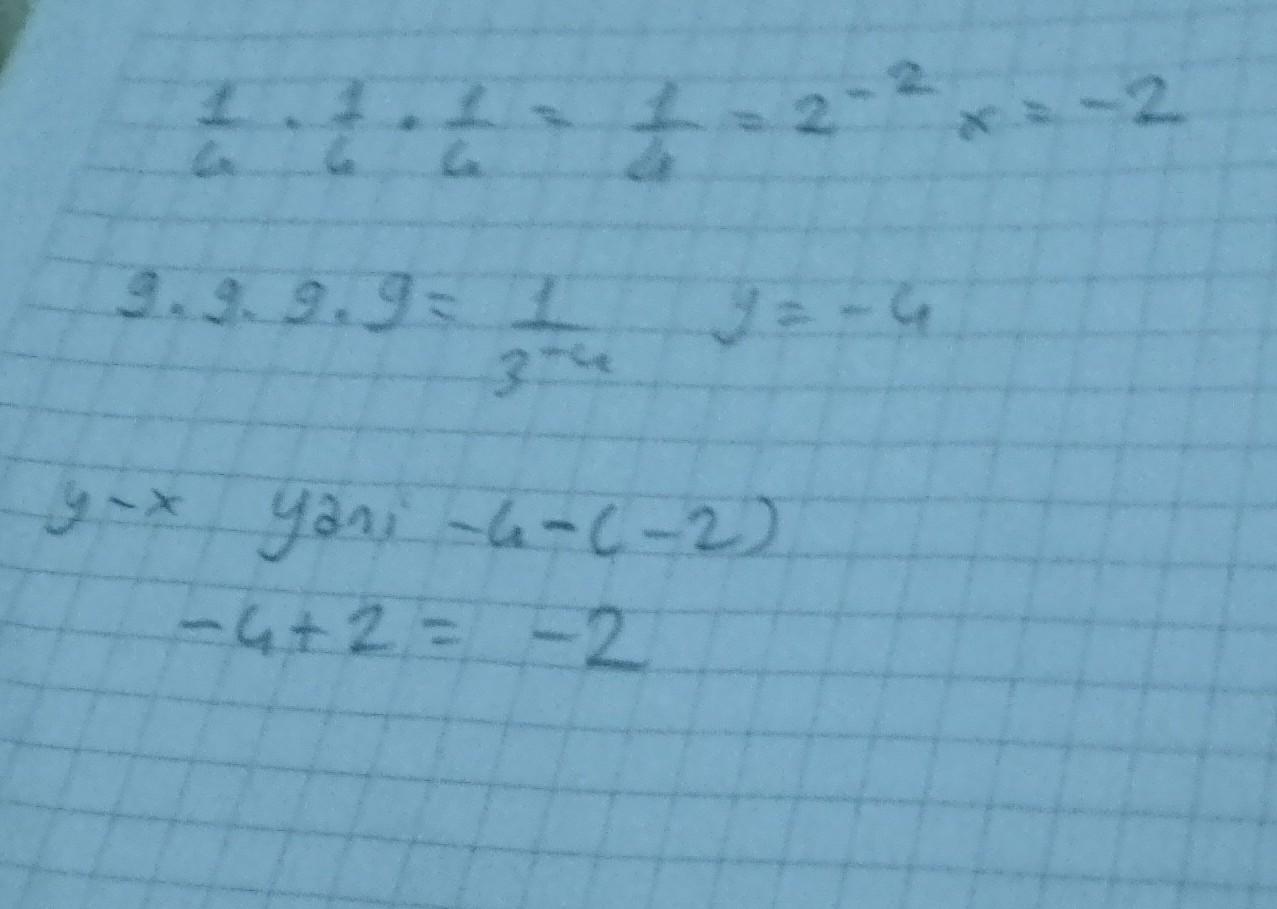 1/4 . 1/4 . 1/4 = 1/4 = 2^-2 x = -2
9.9.9.9 = 1/3^-4 y = -4
y-x yani -4-(-2)
-4+2 = -2